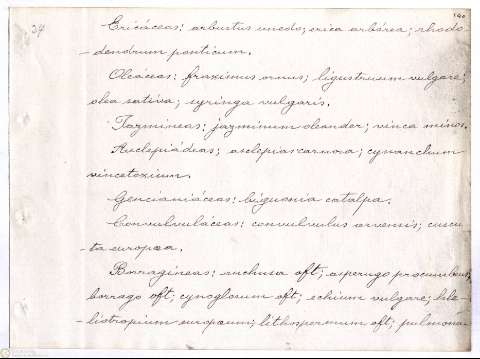 140
34
Ericáceas: arbustus unedo; erica arbórea; rhodo-
-dendrum ponticum.
Oleáceas: fraximus ornus; ligustruum vulgare;
olea sativa; syringa vulgaris.
Jazmineas: jazminum oleander; vinca minor.
Asclepiádeas; asclepias carnora; cynanchum
vincetoxium.
Gencianiáceas: biguonia catalpa.
Convulvuláceas: convulvulus arvensis; cuscu-
ta europæa.
Borragineas: anchusa oft; asperugo procumbens;
borrago oft; cynoglosum oft; echium vulgare; hele-
-liotropium europœum; lithospermum oft; pulmona-